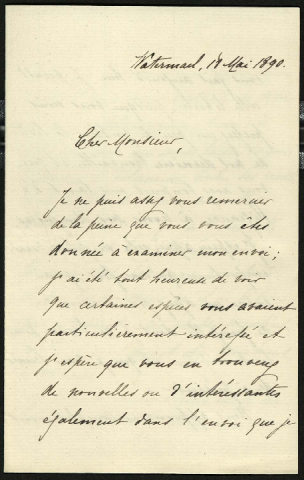 Watermael, 18 Mai 1890.
Cher Monsieur,
Je ne puis assez vous remercier
de la peine que vous vous êtes
donnée à examiner mon envoi;
j'ai été tout heureuse de voir
que certaines espèces vous avaient
particulièrement intéressé et
j'espère que vous en trouverez
de nouvelles ou d'intéressantes
également dans l'envoi que je